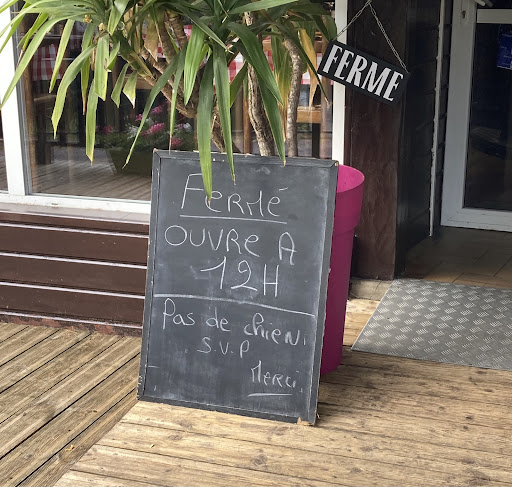 FERMÉ
FERMÉ
OUVRE A
12H
Pas de chien
S.V.P
Merci